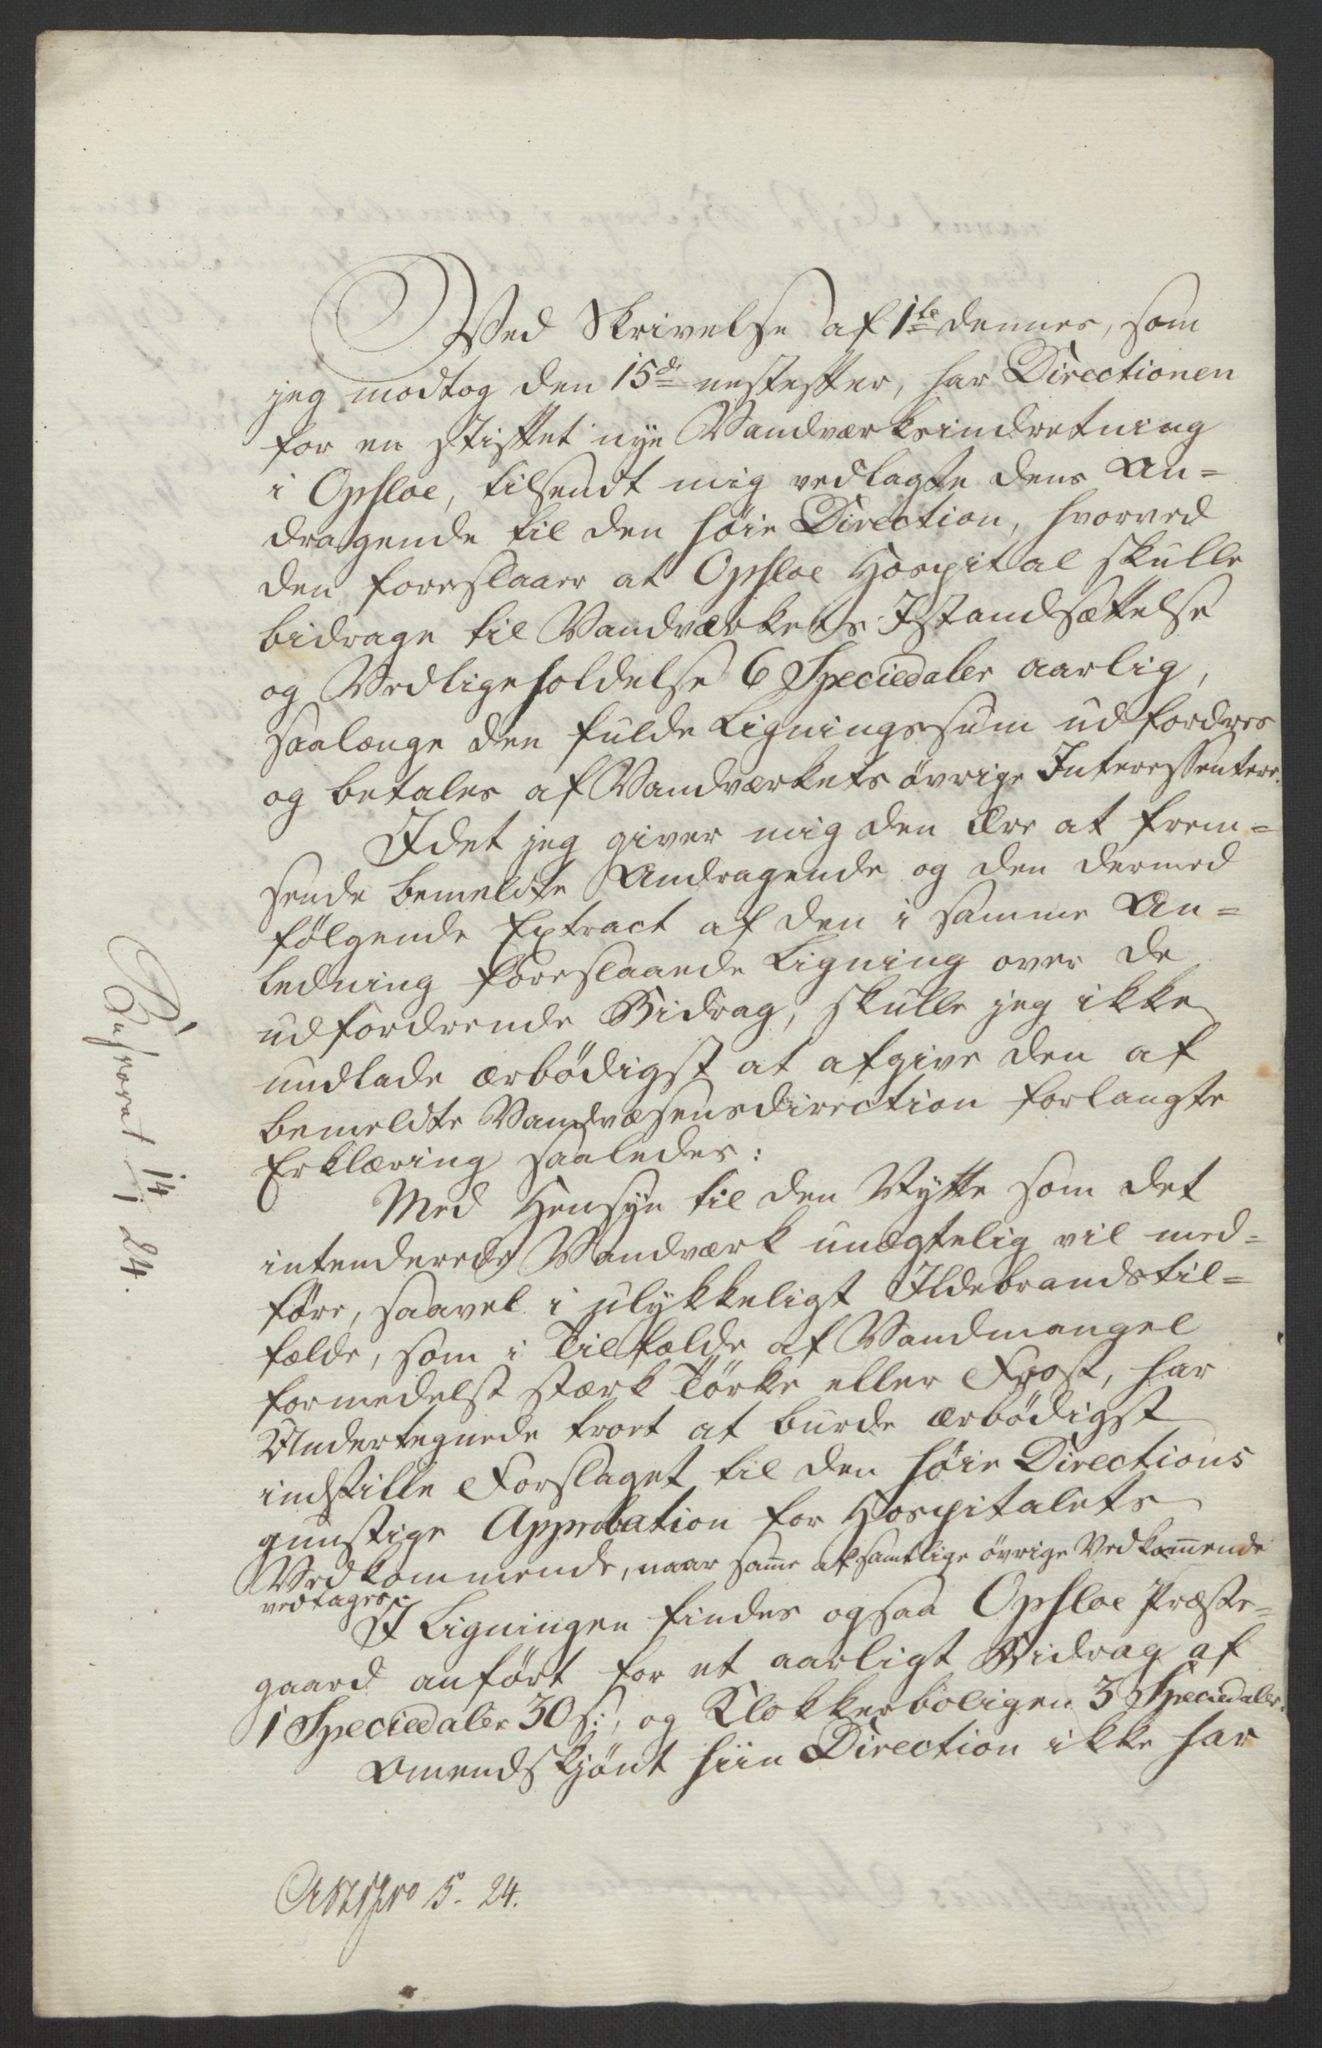 Ved Skrivelse af 1ste dennes, som
jeg modtog den 15de nestefter, har Directionen
for en stiftet nye Vandværksindretning
i Opsloe, tilsendt mig vedlagte dens An=
dragende til den høie Direction, hvorved
den foreslaaer at Opsloe Hospital skulle
bidrage til Vandværkets Istandsættelse
og Vedligeholdelse 6 Speciedaler aarlig,
saalænge den fulde Ligningssum udfordres
og betales af Vandværkets övrige Interessentere.
Idet jeg giver mig den Ære at frem=
sende bemeldte Andragende og den dermed
følgende Extract af den i samme An=
ledning foreslaaede Ligning over de
udfordrende Bidrag, skulle jeg ikke
undlade ærbödigst at afgive den af
bemeldte Vandvæsensdirection forlangte
Erklæring saaledes:
Med Hensyn til den Nytte som det
intenderede Vandværk unægtelig vil med=
före, saavel i ulykkeligt Ildebrandstil=
fælde, som i Tilfælde af Vandmangel
formedelst stærk Törke eller Frost, har
Undertegnede troet at burde ærbödigst
indstille Forslaget til den høie Directions
gunstige Approbation for Hospitalets
Vedkommende, naar same af samtlige övrige Vedkomende
vedtages.
I Ligningen findes ogsaa Opsloe Præste=
gaard anfört for et aarligt Bidrag af
1 Speciedaler 30 s:, og Klokkerboligen 3 Speciedaler.
Omendskjönt hiin Direction ikke har
5. 24.
14
1 24.